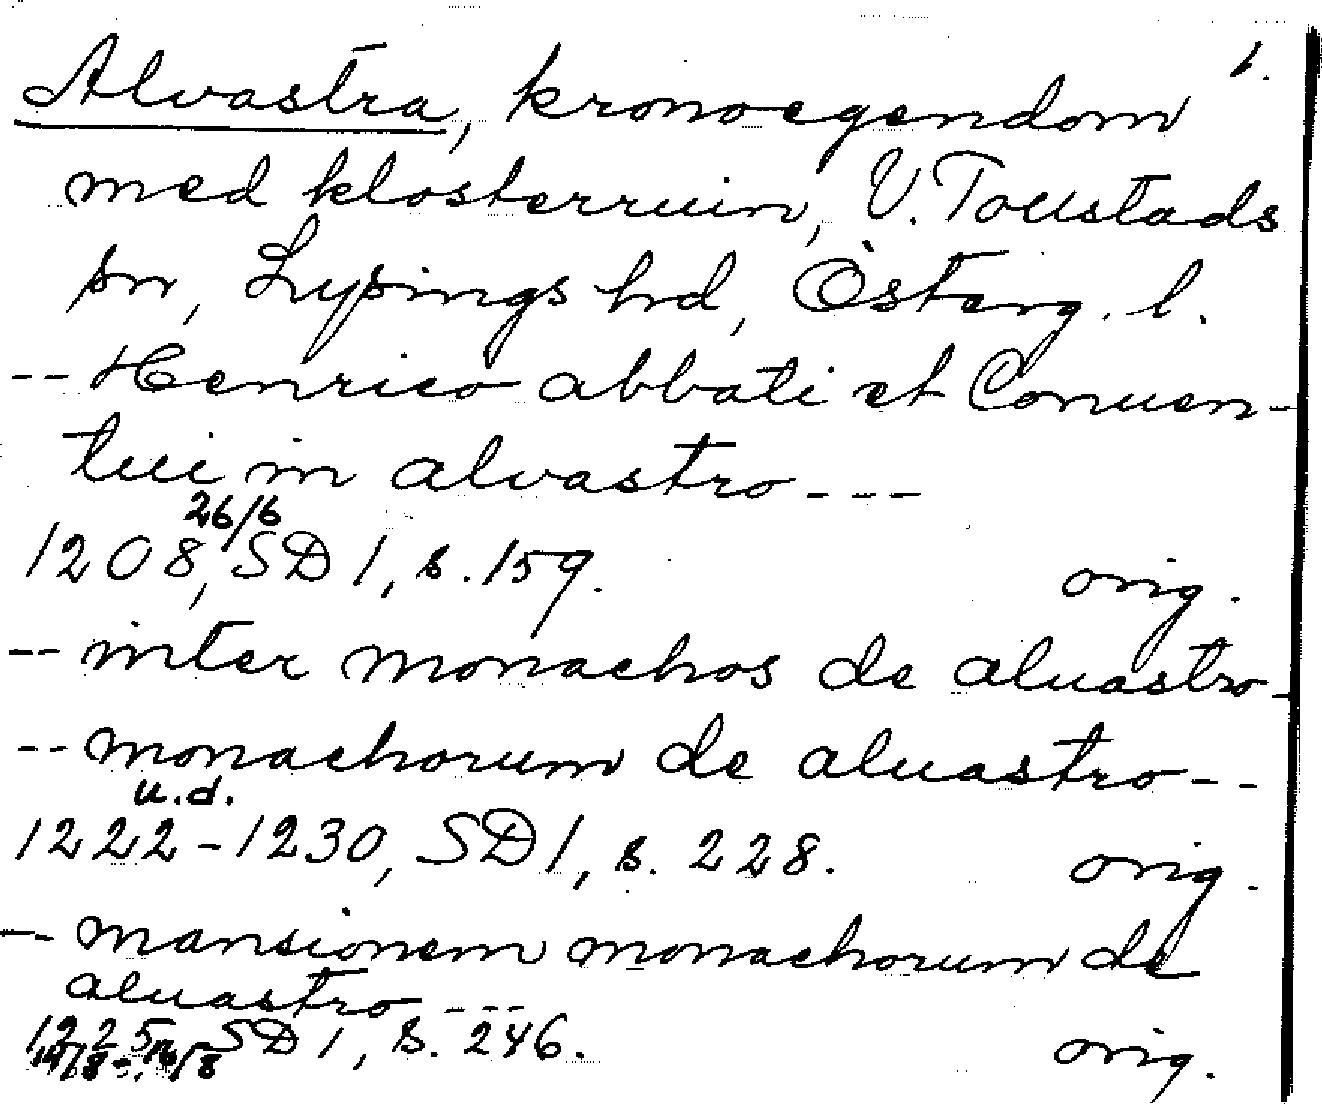 1.
Alvastra, kronoegendom
med klosterruin, V. Tollstads
sn, Lysings hd, Österg. l.
-- Henrico abbati et Conuen-
tui in alvastro ---
26/6
1208, SD 1, s. 159. orig.
-- inter monachos de aluastro -
-- monachorum de aluastro --
u.d.
1222-1230, SD 1, s. 228. orig.
-- mansionem monachorum de
aluastro ---
1225, SD 1, s. 246. orig.